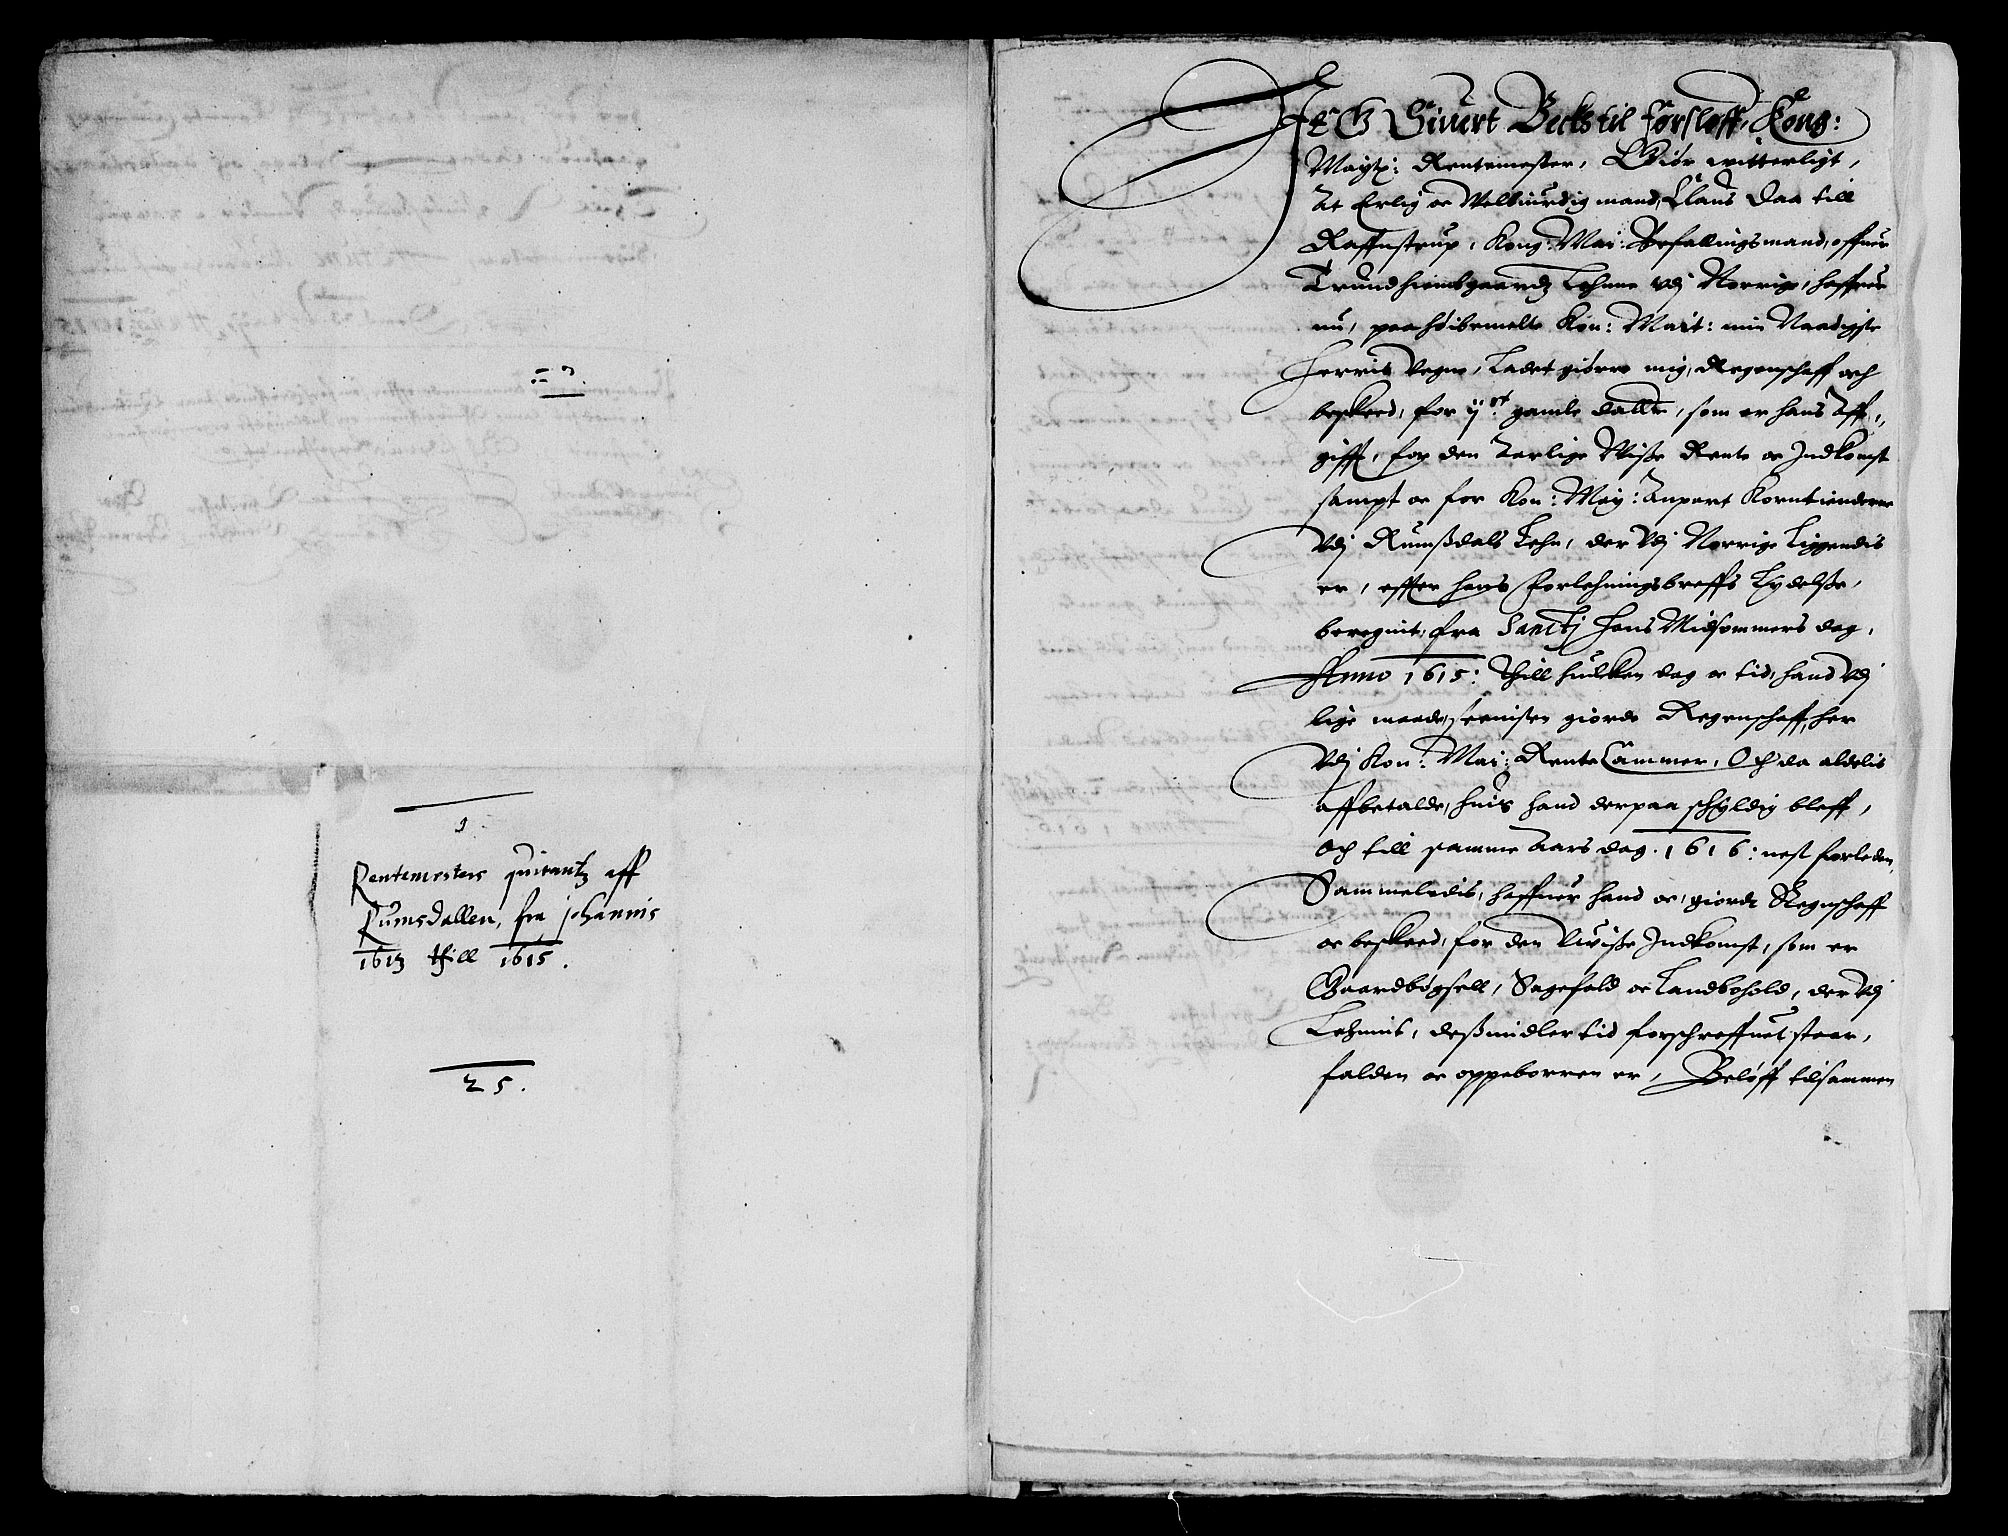 1
Rentemesters quitantz aff
Rumsdallen, fra johannis
161z thill 1615.
25.
JEG Siuert Becks til Førsløff, Kong:
Maytz: Rentemester, Giør witterligt,
At Erlig oc Welbiurdig mand, Claus Daa till
Raffnstrup, Kong: Mai: Befallingsmand, offuer
Trundhiembgaardz Lehnne vdj Norrige, haffuer
nu, paa høibemelte Kon: Mait: min Naadigste
Herris Vegne, Ladet giørre mig, Regenschaff och
beskeed, for ij gamle daller, som er hans Aff-
gifft, for den Aarlige Wiße Rente oc Indkomst
sampt oc for Kon: May: Anpart Korntienderne
Vdj Rumßdals Lehn, der Vdj Norrige Liggendis
er, effter hans Forlehningsbreffs Lydelße,
beregnit, fra Sanctj Hans Midsommers dag,
Anno 1615: Thill huilcken dag oc tid, hand Vdj
lige maade, seenisten giorde Regenschaff, her
Vdj Kon: Mai: Rente Cammer, Och da aldelis
affbetalde, huis hand derpaa schyldig bleff,
Och till samme Aars dag. 1616: nest forleden,
Sammeledis, haffuer hand oc, giordt Regnschaff
oc beskeed, for den Vwiße Indkomst, som er
Gaardbøgsell, Sagefald oc Landbohold, der Vdj
Lehnnit, deßmidler tid forschreffuet staar,
falden oc oppeborren er, Beløff tilsammen